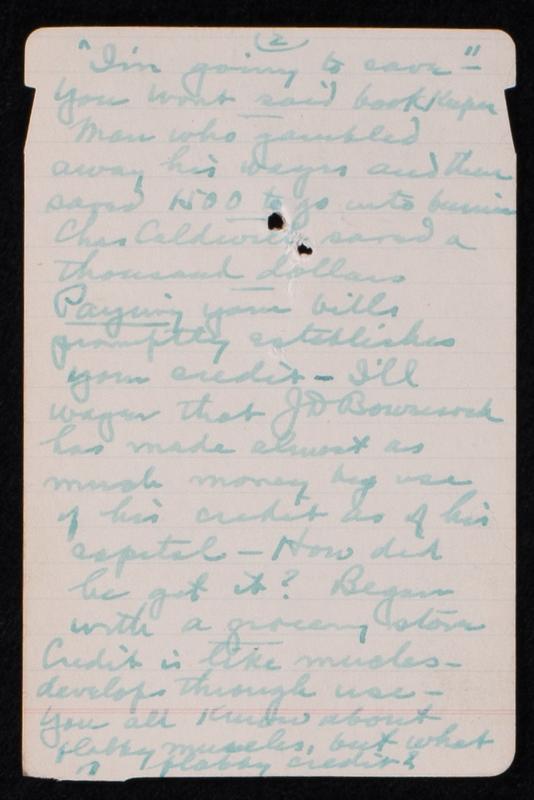 (2)
"I'm going to save" -
You wont said bookkeeper
Man who gambled
away his wages and then
saved 1500 to go into business
Chas Caldwell saved a
thousand dollars
Paying your bills
promptly establishes
your credit - I'll
wager that JD Bowersock
has made almost as
much money by use
of his credit as of his
capital - How did
he get it? Began
with a grocery store
Credit is like mucles -
develops through use -
You all know about
flabby muscles, but what
is flabby credit?